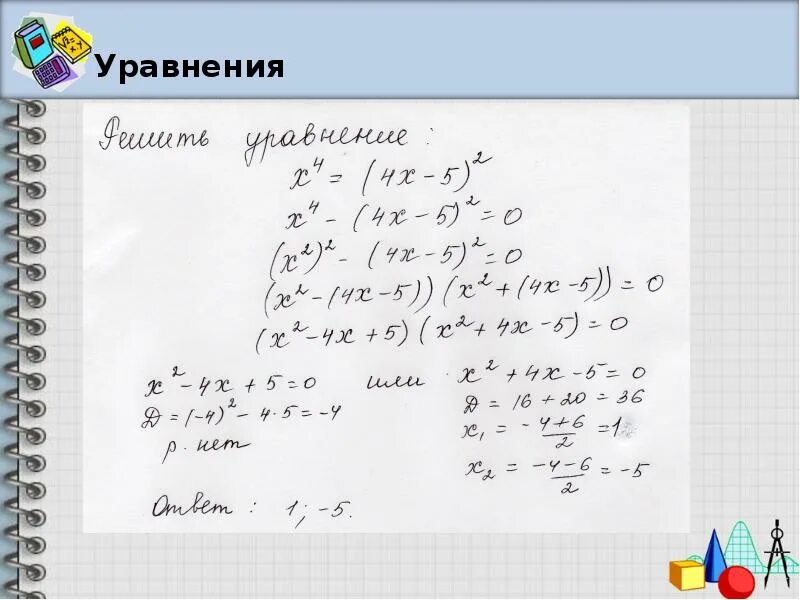 Уравнения
Решить уравнение:
x⁴ = (4x - 5)²
x⁴ - (4x - 5)² = 0
(x²)² - (4x - 5)² = 0
(x² - (4x - 5)) (x² + (4x - 5)) = 0
(x² - 4x + 5) (x² + 4x - 5) = 0
x² - 4x + 5 = 0 или x² + 4x - 5 = 0
Д = (-4)² - 4·5 = -4
р. нет
Д = 16 + 20 = 36
x₁ = (-4+6)/2 = 1
x₂ = (-4-6)/2 = -5
Ответ: 1; -5.